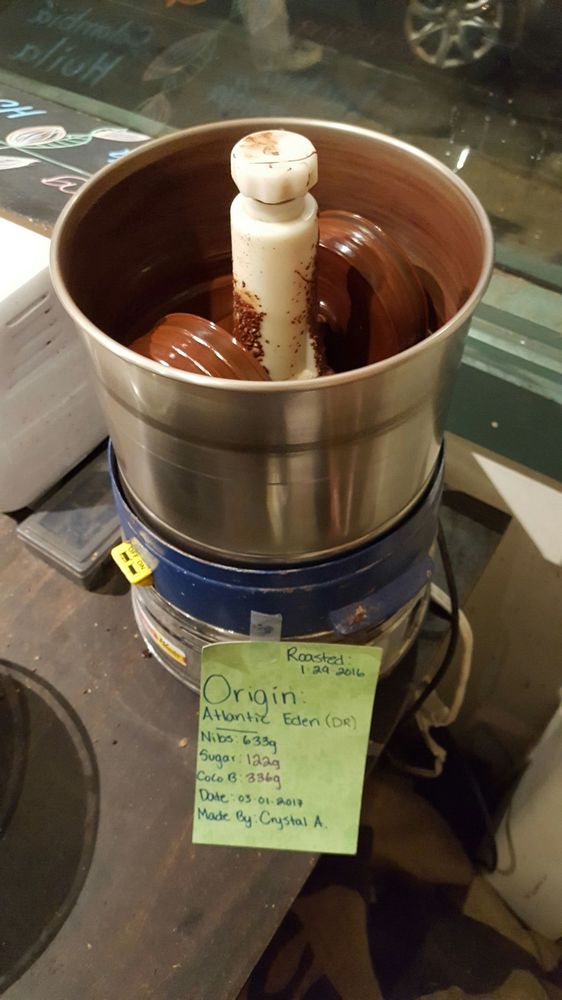 Colombia
Huila
Roasted:
1.29.2016
Origin:
Atlantic Eden (DR)
Nibs: 633g
Sugar: 122g
Coco B: 336g
Date: 03.01.2017
Made By: Crystal A.
OFF ON